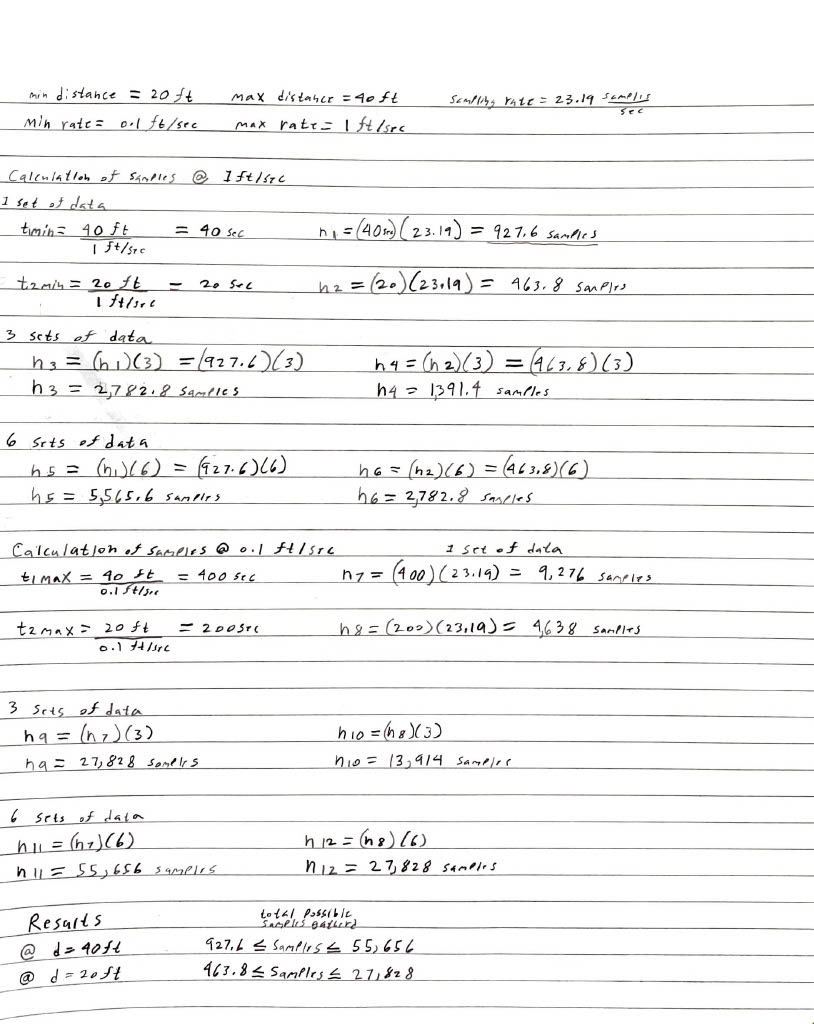 min distance = 20 ft max distance = 40 ft sampling rate = 23.19 samples/sec
min rate = 0.1 ft/sec max rate = 1 ft/sec
Calculation of samples @ 1 ft/sec
1 set of data
t1min = 40 ft / 1 ft/sec = 40 sec n1 = (40 sec)(23.19) = 927.6 samples
t2min = 20 ft / 1 ft/sec = 20 sec n2 = (20)(23.19) = 463.8 samples
3 sets of data
n3 = (n1)(3) = (927.6)(3) n4 = (n2)(3) = (463.8)(3)
n3 = 2,782.8 samples n4 = 1,391.4 samples
6 sets of data
n5 = (n1)(6) = (927.6)(6) n6 = (n2)(6) = (463.8)(6)
n5 = 5,565.6 samples n6 = 2,782.8 samples
Calculation of samples @ 0.1 ft/sec 1 set of data
t1max = 40 ft / 0.1 ft/sec = 400 sec n7 = (400)(23.19) = 9,276 samples
t2max = 20 ft / 0.1 ft/sec = 200 sec n8 = (200)(23.19) = 4,638 samples
3 sets of data
n9 = (n7)(3) n10 = (n8)(3)
n9 = 27,828 samples n10 = 13,914 samples
6 sets of data
n11 = (n7)(6) n12 = (n8)(6)
n11 = 55,656 samples n12 = 27,828 samples
Results total possible samples
@ d = 40 ft 927.6 ≤ samples ≤ 55,656
@ d = 20 ft 463.8 ≤ samples ≤ 27,828